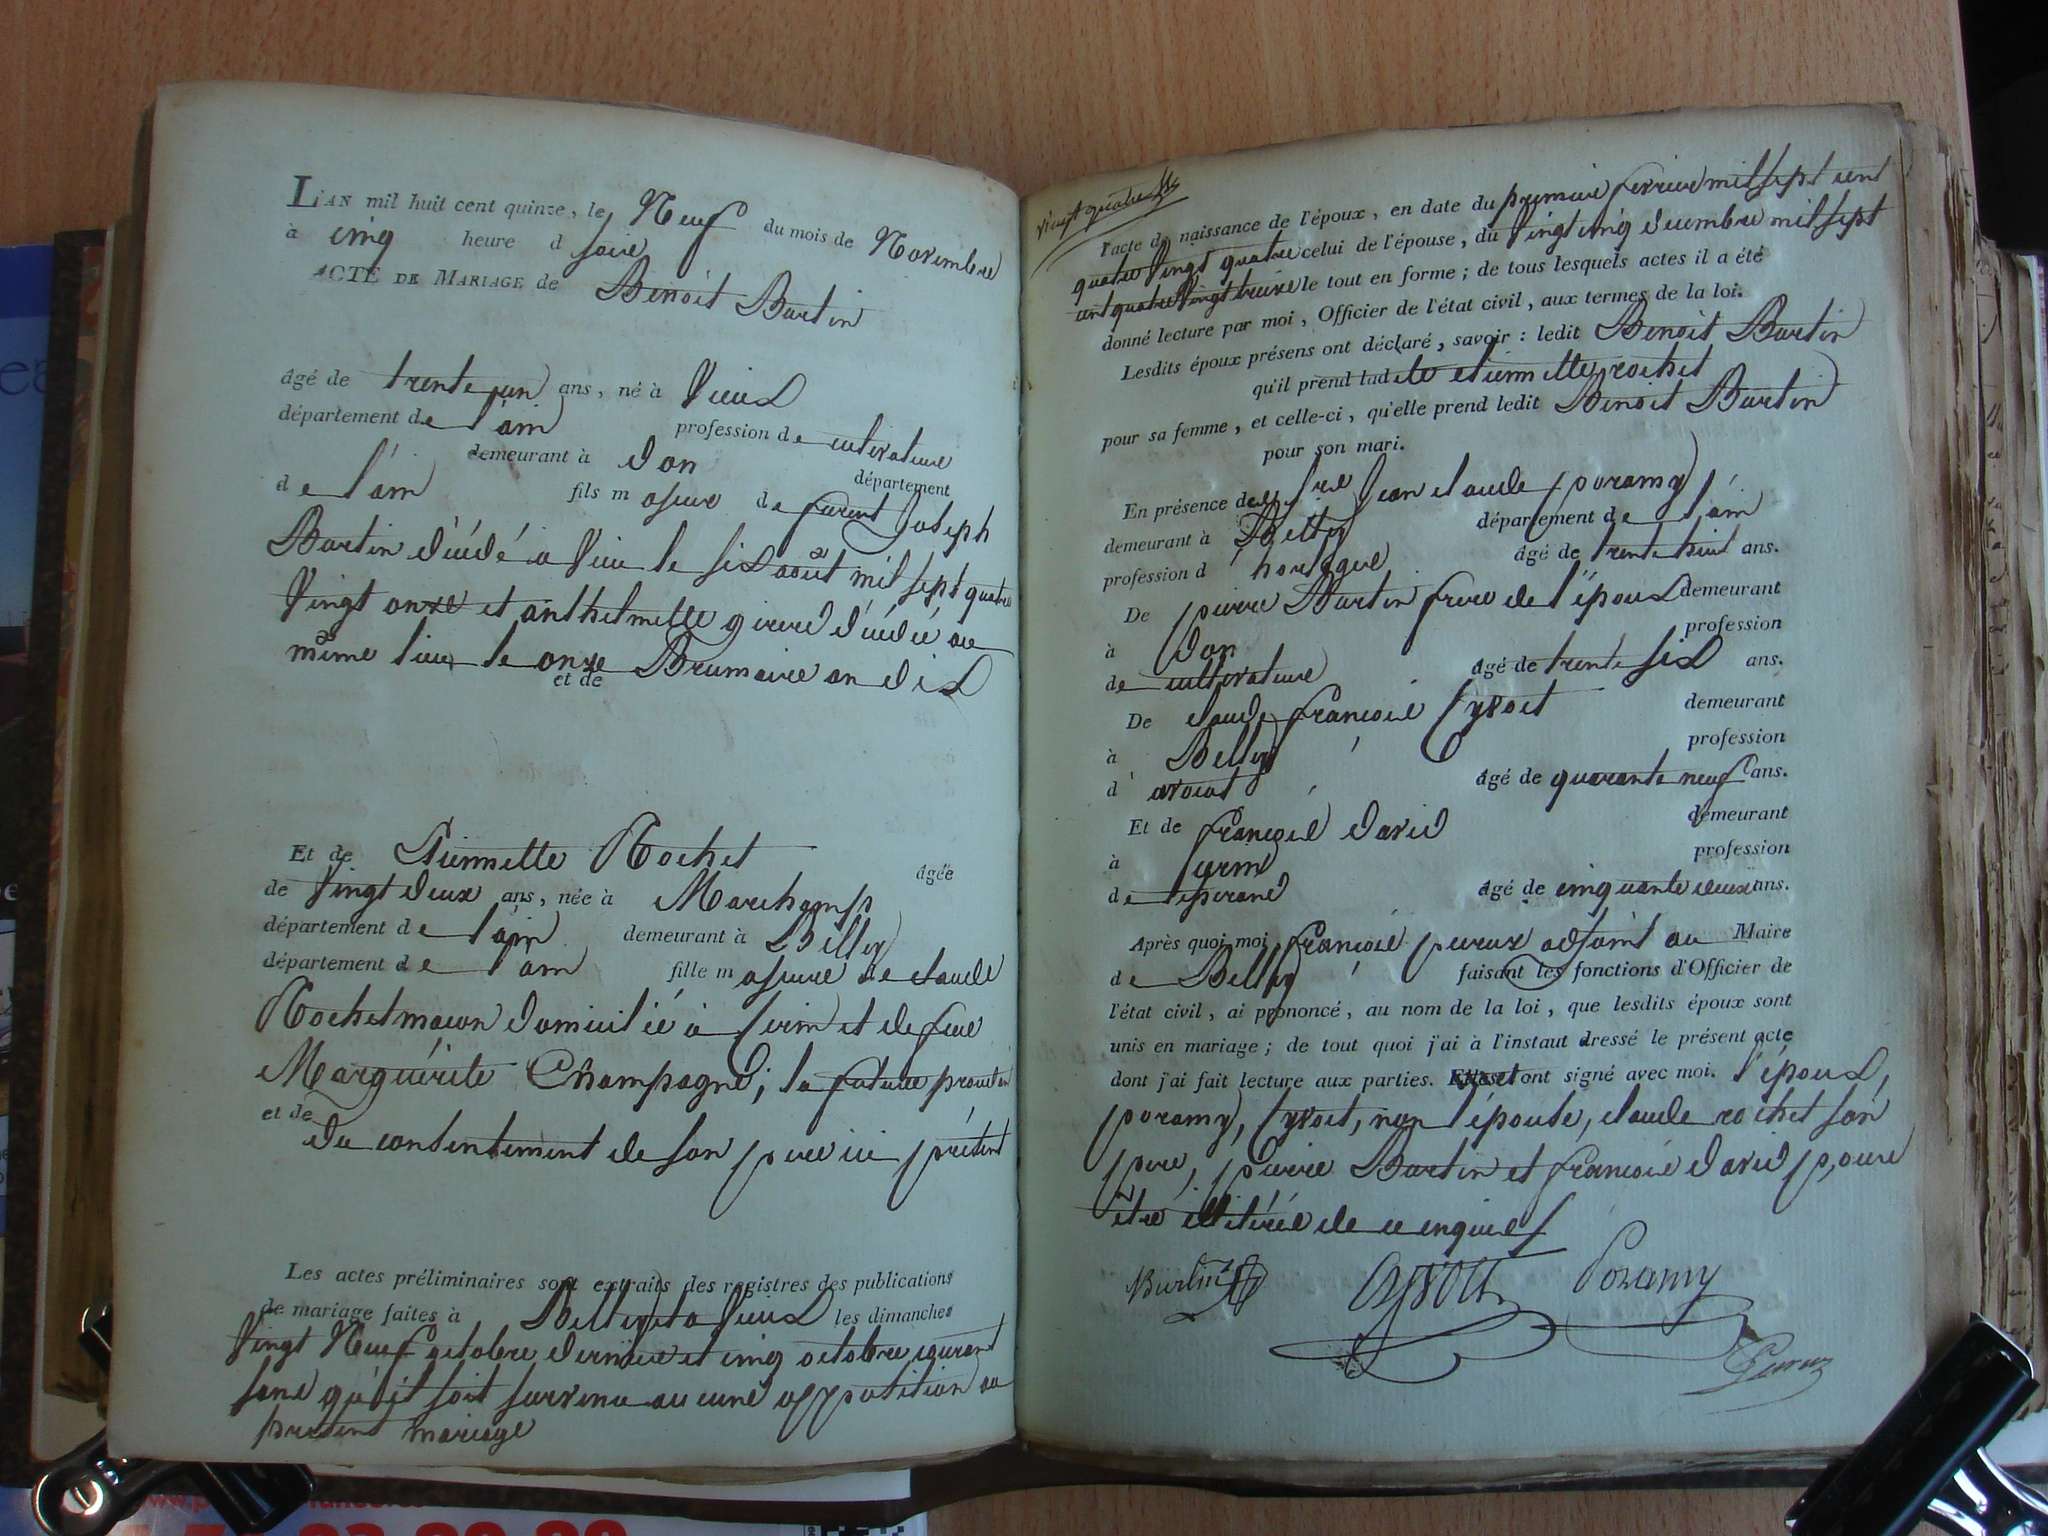 L'AN mil huit cent quinze, le Neuf du mois de Novembre
à cinq heure d soir
ACTE DE MARIAGE de Benoit Burtin
âgé de trente un ans, né à Vieux
département de l'ain profession de cultivateur
demeurant à don département
de l'ain fils majeur de furent Joseph
Burtin décédé a Vieu le six août mil sept quatre
Vingt onze et anthelmette girerd décédée au
même lieu le onze Brumaire an dix
et de
Et de Etiennette Rochet âgée
de Vingt deux ans, née à Marchamp
département de l'ain demeurant à Belley
département de l'ain fille majeure de claude
Rochet macon domicilié à et de feue
Marguérite Champagne; la future
et de
du contentement de son pere ici présent
Les actes préliminaires sont extraits des registres des publications
de mariage faites à Belley et a Vieux les dimanches
Vingt Neuf octobre dernier et cinq octobre courant
sans qu'il soit survenu aucune opposition au
présent mariage
vingt quatre
l'acte de naissance de l'époux, en date du premier fevrier mil sept cent
quatre Vingt quatre celui de l'épouse, du Vingt cinq decembre mil sept
cent quatre Vingt treize le tout en forme; de tous lesquels actes il a été
donné lecture par moi, Officier de l'état civil, aux termes de la loi.
Lesdits époux présens ont déclaré, savoir: ledit Benoit Burtin
qu'il prend lad ite etiennette rochet
pour sa femme, et celle-ci, qu'elle prend ledit Benoit Burtin
pour son mari.
En présence des Srs Jean claude poramy
demeurant à Belley département de l'ain
profession d' horloger âgé de trente huit ans.
De pierre Burtin frere de l'époux demeurant
à don profession
de cultivateur âgé de trente six ans.
De claude françois Cyvoct demeurant
à Belley profession
d' avocat âgé de quarante neuf ans.
Et de françois david demeurant
à profession
de tisserand âgé de cinquante deux ans.
Après quoi moi françois peruux adjoint au Maire
de Belley faisant les fonctions d'Officier de
l'état civil, ai prononcé, au nom de la loi, que lesdits époux sont
unis en mariage; de tout quoi j'ai à l'instaut dressé le présent acte
dont j'ai fait lecture aux parties. ont signé avec moi. l'époux,
poramy, Cyvoct, non l'épouse, claude rochet son
pere, pierre Burtin et françois david pour
être illitérés de ce enquis
Burtin Cyvoct Poramy